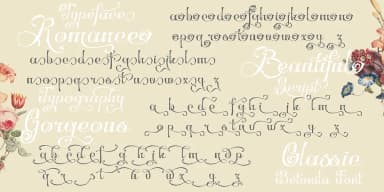 Typeface
Romancee
abcdefghijklmno
pqrstuvwxyz
abcdefghijklmn
nopqrstuvwxyz
Beautiful
Script
Typography
Gorgeous
abcdefghijklmn
opqrstuvwxyz
abcdefghijklmnop
qrstuvwxyz
Classic
Belinda Font